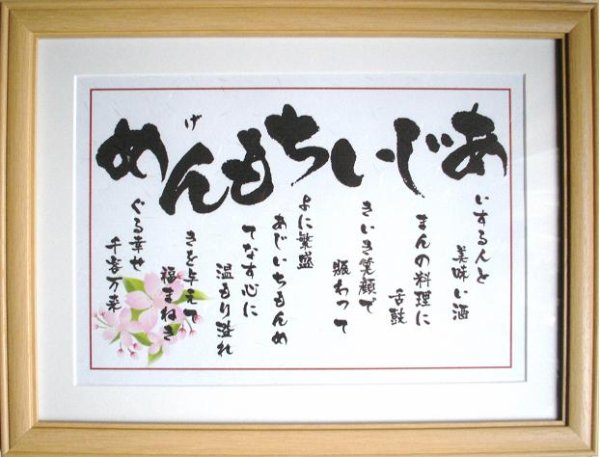 あじいちもんめ
げ
いする人と
美味い酒
まんの料理に
舌鼓
きいき笑顔で
賑わって
よに繁盛
あじいちもんめ
てなす心に
温もり溢れ
きを与えて
福まねき
ぐる幸せ
千客万来